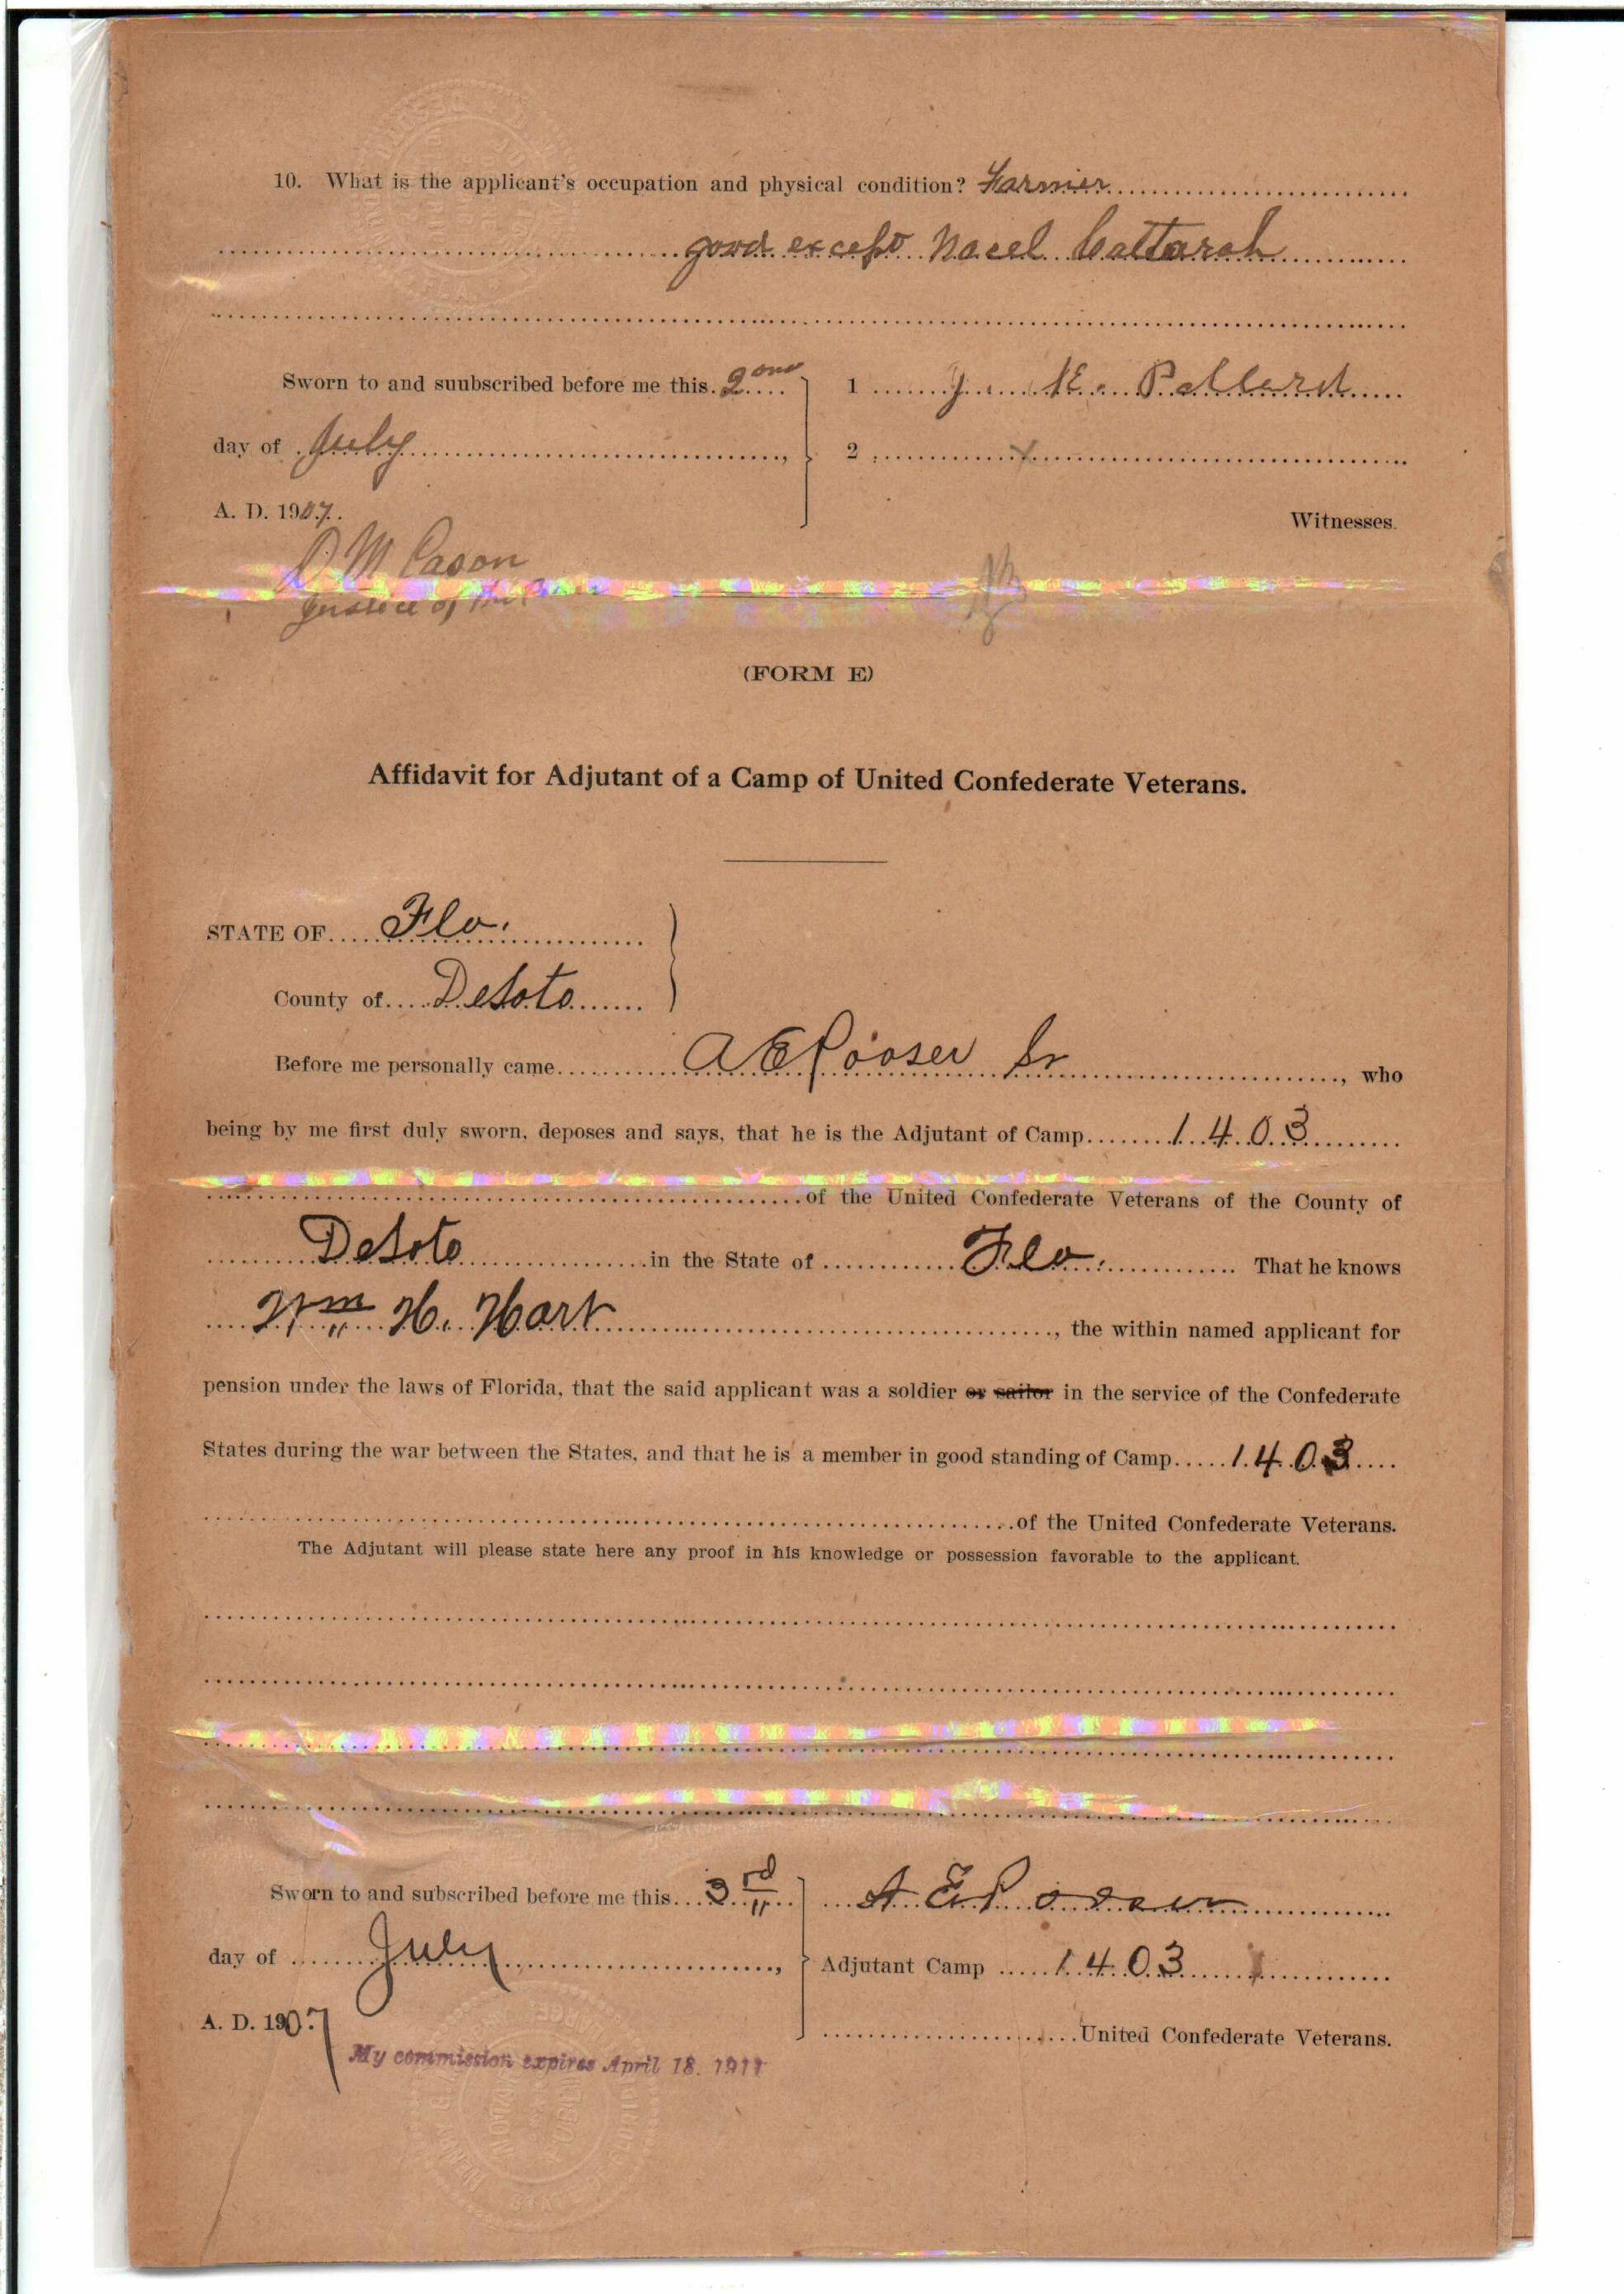 10. What is the applicant's occupation and physical condition? Farmier
good except Nacel Cattarah
Sworn to and suubscribed before me this 2ond
1 J. K. Pollard
day of July,
2 x
A. D. 1907.
Witnesses.
D M Cason
Justice of the
(FORM E)
Affidavit for Adjutant of a Camp of United Confederate Veterans.
STATE OF Fla.
County of DeSoto
Before me personally came A E Pooser Sr, who
being by me first duly sworn, deposes and says, that he is the Adjutant of Camp 1403
of the United Confederate Veterans of the County of
DeSoto in the State of Fla. That he knows
Wm H. Hart, the within named applicant for
pension under the laws of Florida, that the said applicant was a soldier or sailor in the service of the Confederate
States during the war between the States, and that he is a member in good standing of Camp 1403
of the United Confederate Veterans.
The Adjutant will please state here any proof in his knowledge or possession favorable to the applicant.
Sworn to and subscribed before me this 3rd
A E Pooser
day of July,
Adjutant Camp 1403
A. D. 1907
United Confederate Veterans.
My commission expires April 18. 1911